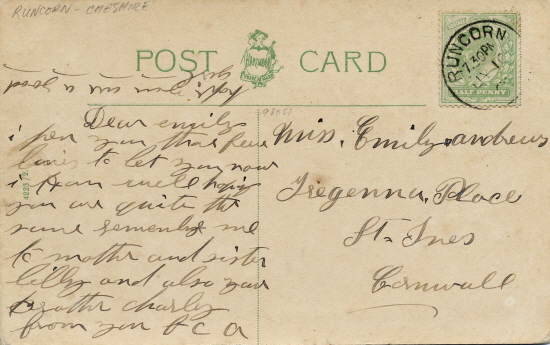 RUNCORN - CHESHIRE
POST CARD
RUNCORN
7.30PM
HALF PENNY
Dear emily
i pen you thas few
lines to let you now
i am well hoping
you are quite the
same remember me
to mother and sister
lilly and also your
brother charly
from you A C A
Miss. Emily andrews
Tregenna Place
St. Ives
Cornwall